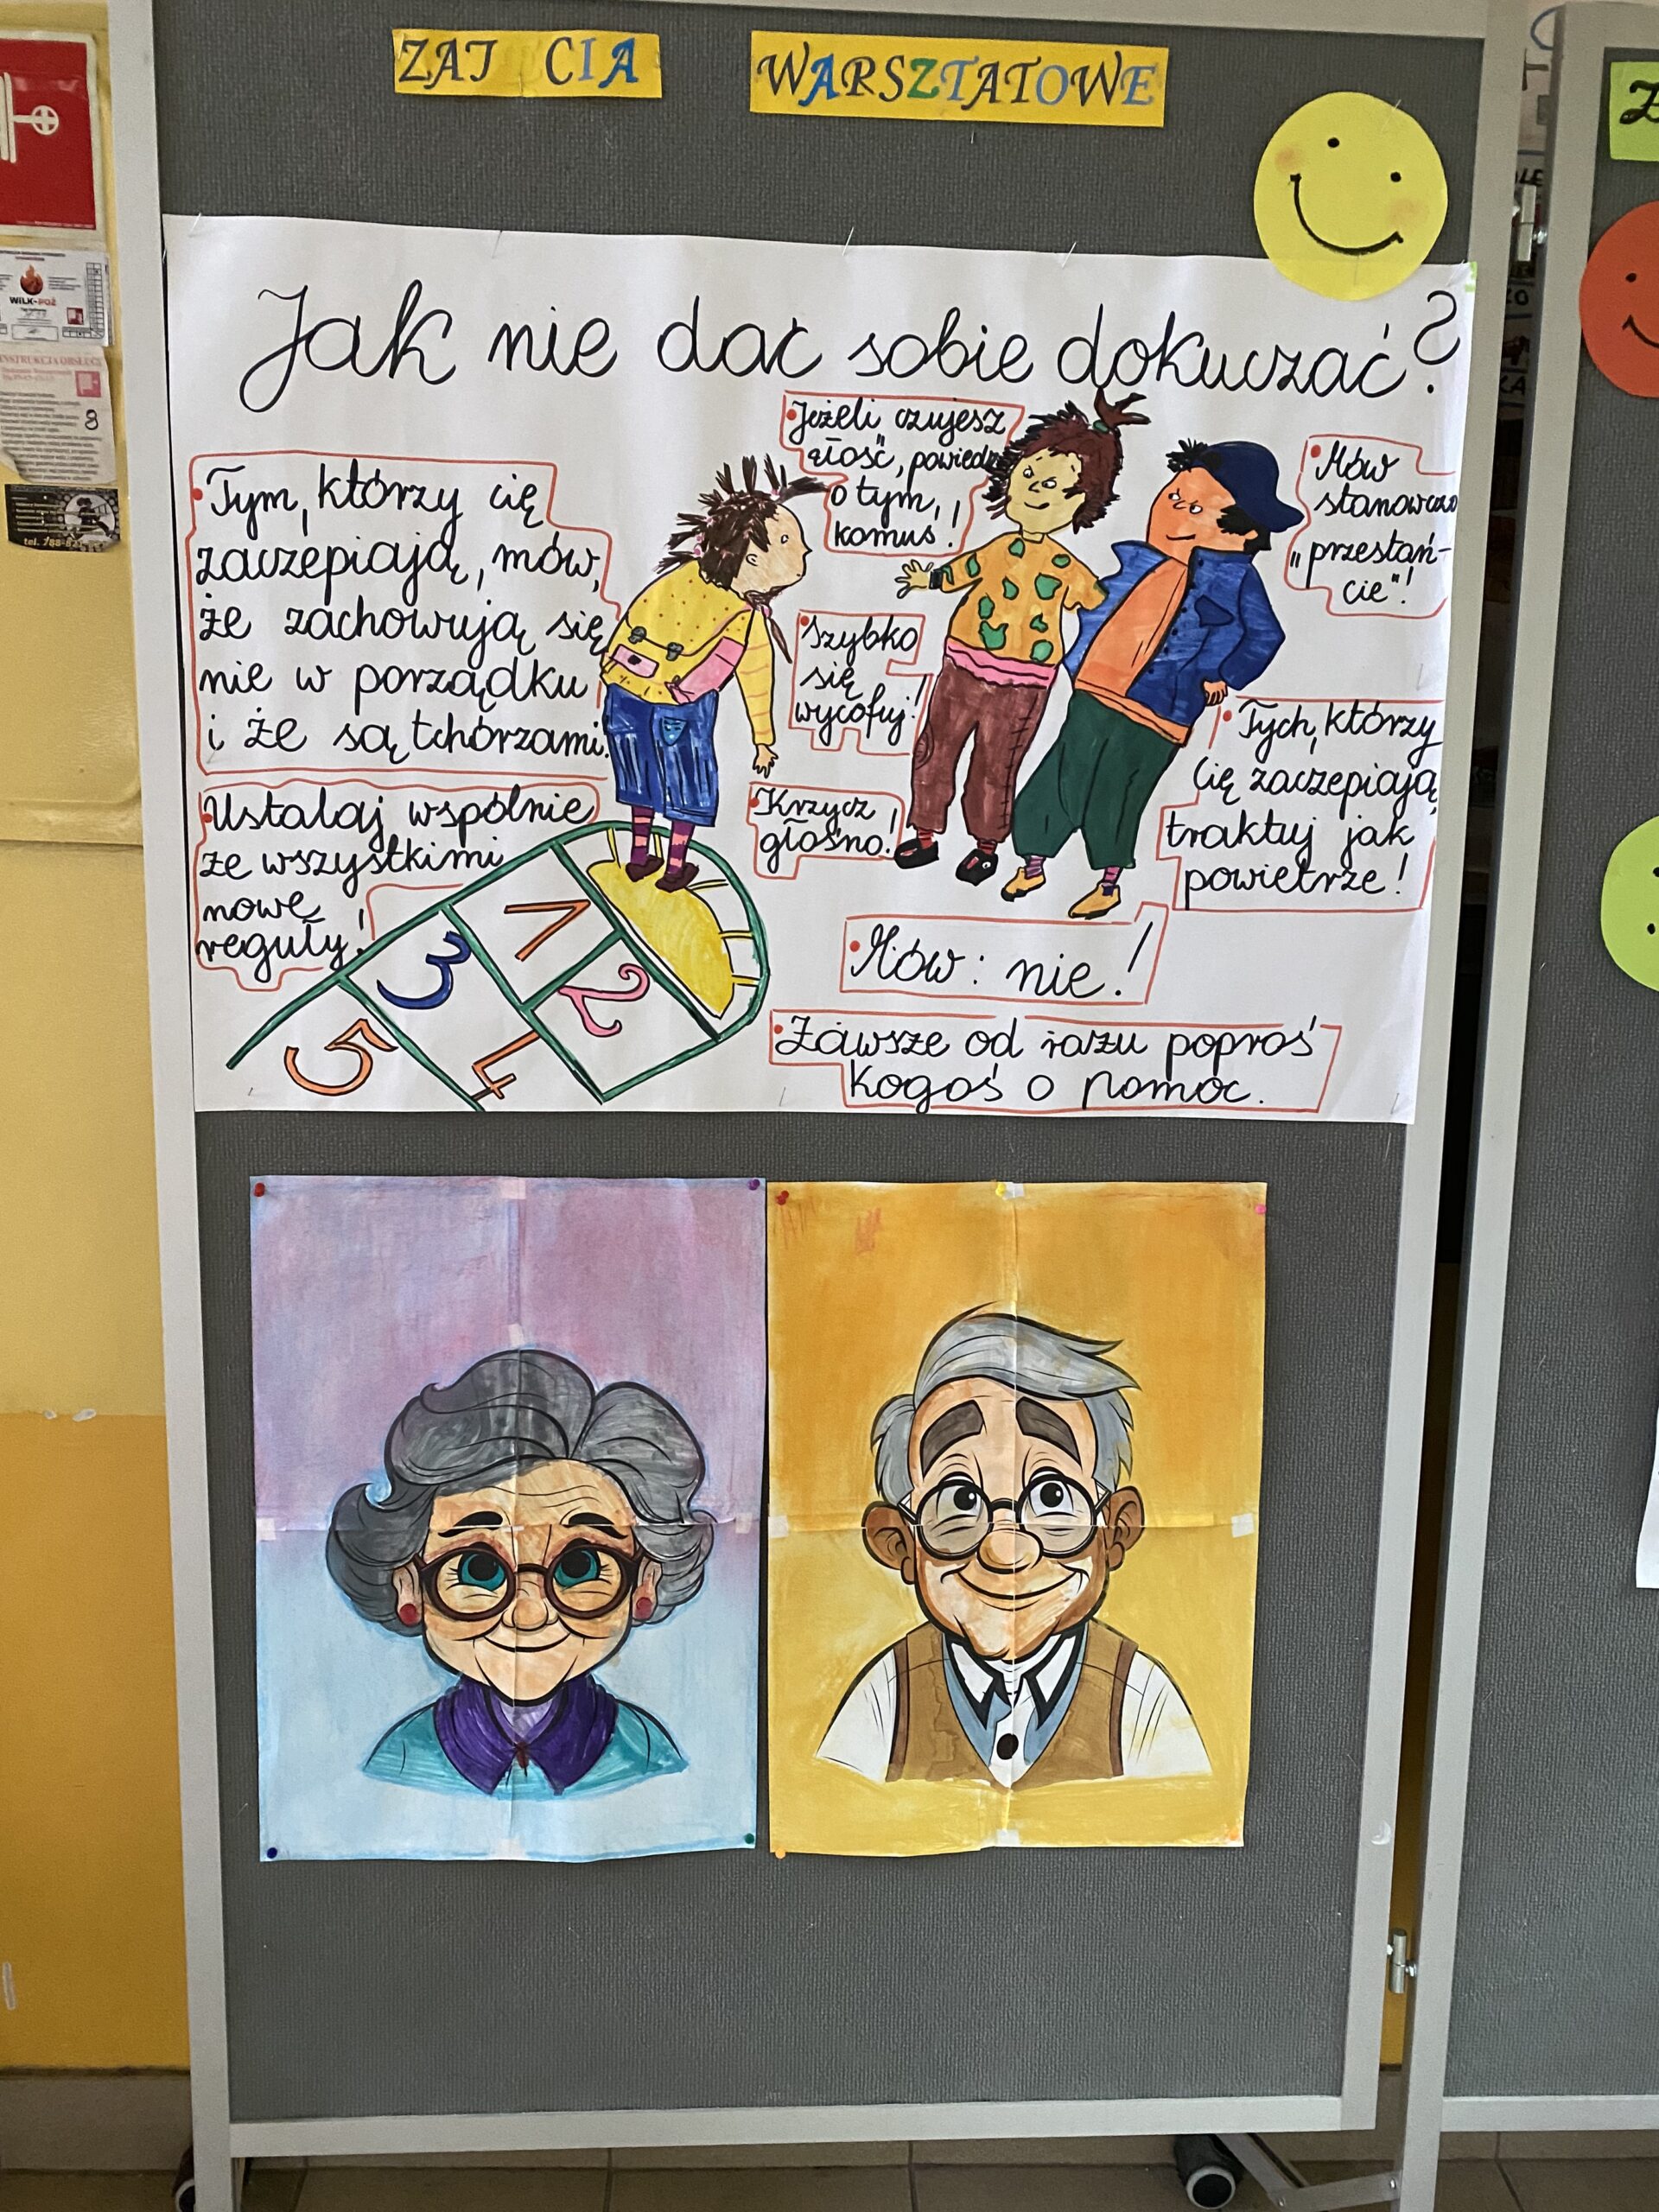 ZAJ CIA WARSZTATOWE
Jak nie dać sobie dokuczać?
Tym, którzy cię
zaczepiają, mów,
że zachowują się
nie w porządku
i że są tchórzami.
Jeżeli czujesz
złość, powiedz
o tym,
komuś!
Mów
stanowczo
"przestań-
cie"!
Szybko
się
wycofuj!
Tych, którzy
cię zaczepiają,
traktuj jak
powietrze!
Ustalaj wspólnie
ze wszystkimi
nowe
reguły!
Krzycz
głośno!
Mów: nie!
Zawsze od razu poproś
kogoś o pomoc.
1
2
3
4
5
WILK-POŻ
INSTRUKCJA OBSŁUGI